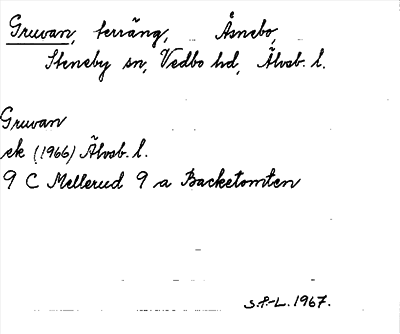 Gruvan, terräng, Åsnebo,
Steneby sn, Vedbo hd, Älvsb. l.
Gruvan
ek (1966) Älvsb. l.
9 C Mellerud 9 a Backetomten
S.F-L. 1967.